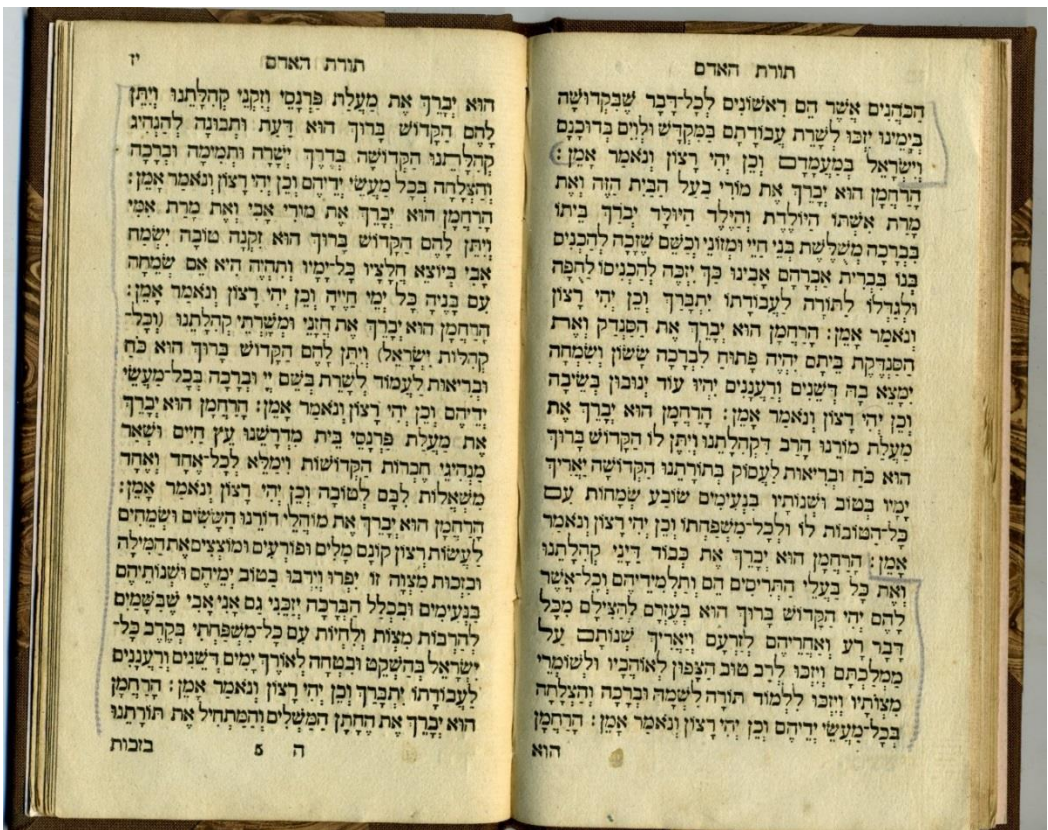 תורת האדם
הַכֹּהֲנִים אֲשֶׁר הֵם רִאשׁוֹנִים לְכָל־דָּבָר שֶׁבִּקְדוּשָׁה
בְּיָמֵינוּ יִזְכּוּ לְשָׁרֵת עֲבוֹדָתָם בַּמִּקְדָּשׁ וּלְוִיִּם בְּדוּכָנָם
וְיִשְׂרָאֵל בְּמַעֲמָדָם וְכֵן יְהִי רָצוֹן וְנֹאמַר אָמֵן:
הָרַחֲמָן הוּא יְבָרֵךְ אֶת מוֹרִי בַּעַל הַבַּיִת הַזֶּה וְאֶת
מָרַת אִשְׁתּוֹ הַיּוֹלֶדֶת וְהַיֶּלֶד הַיּוּלָד יְבֹרַךְ בֵּיתוֹ
בִּבְרָכָה מְשֻׁלֶּשֶׁת בְּנֵי חַיֵּי וּמְזוֹנֵי וּכְשֵׁם שֶׁזָּכָה לְהַכְנִים
בְּנוֹ בִּבְרִית אַבְרָהָם אָבִינוּ כַּךְ יִזְכֶּה לְהַכְנִיסוֹ לְחֻפָּה
וּלְגַדְּלוֹ לְתוֹרָה לַעֲבוֹדָתוֹ יִתְבָּרַךְ וְכֵן יְהִי רָצוֹן
וְנֹאמַר אָמֵן: הָרַחֲמָן הוּא יְבָרֵךְ אֶת הַסַּנְדָּק וְאֶת
הַסַּנְדֶּקֶת בֵּיתָם יִהְיֶה פָּתוּחַ לִבְרָכָה שָׂשׂוֹן וְשִׂמְחָה
יִמָּצֵא בָהּ דְּשֵׁנִים וְרַעֲנַנִּים יִהְיוּ עוֹד יְנוּבוּן בְּשֵׂיבָה
וְכֵן יְהִי רָצוֹן וְנֹאמַר אָמֵן: הָרַחֲמָן הוּא יְבָרֵךְ אֶת
מַעֲלַת מוֹרֵנוּ הָרַב דִּקְהִלָּתֵנוּ וְיִתֶּן לוֹ הַקָּדוֹשׁ בָּרוּךְ
הוּא כֹּחַ וּבְרִיאוּת לַעֲסוֹק בְּתוֹרָתֵנוּ הַקְּדוֹשָׁה יַאֲרִיךְ
יָמָיו בְּטוֹב וּשְׁנוֹתָיו בִּנְעִימִים שׂוֹבַע שְׂמָחוֹת עִם
כָּל־הַטּוֹבוֹת לוֹ וּלְכָל־מִשְׁפַּחְתּוֹ וְכֵן יְהִי רָצוֹן וְנֹאמַר
אָמֵן: הָרַחֲמָן הוּא יְבָרֵךְ אֶת כְּבוֹד דַּיָּנֵי קְהִלָּתֵנוּ
וְאֶת כָּל בַּעֲלֵי הַתְּרִיסִים הֵם וְתַלְמִידֵיהֶם וְכָל־אֲשֶׁר
לָהֶם יְהִי הַקָּדוֹשׁ בָּרוּךְ הוּא בְּעֶזְרָם לְהַצִּילָם מִכָּל
דָּבָר רָע וְאַחֲרֵיהֶם לְזַרְעָם וְיַאֲרִיךְ שְׁנוֹתָם עַל
מַמְלַכְתָּם וְיִזְכּוּ לְרַב טוּב הַצָּפוּן לְאוֹהֲבָיו וּלְשׁוֹמְרֵי
מִצְוֹתָיו וְיִזְכּוּ לִלְמוֹד תּוֹרָה לִשְׁמָהּ וּבְרָכָה וְהַצְלָחָה
בְּכָל־מַעֲשֵׂי יְדֵיהֶם וְכֵן יְהִי רָצוֹן וְנֹאמַר אָמֵן: הָרַחֲמָן
הוא
תורת האדם יז
הוּא יְבָרֵךְ אֶת מַעֲלַת פַּרְנָסֵי וְזִקְנֵי קְהִלָּתֵנוּ וְיִתֵּן
לָהֶם הַקָּדוֹשׁ בָּרוּךְ הוּא דַּעַת וּתְבוּנָה לְהַנְהִיג
קְהִלָּתֵנוּ הַקְּדוֹשָׁה בְּדֶרֶךְ יְשָׁרָה וּתְמִימָה וּבְרָכָה
וְהַצְלָחָה בְּכָל מַעֲשֵׂי יְדֵיהֶם וְכֵן יְהִי רָצוֹן וְנֹאמַר אָמֵן:
הָרַחֲמָן הוּא יְבָרֵךְ אֶת מוֹרִי אָבִי וְאֶת מָרַת אִמִּי
וְיִתֵּן לָהֶם הַקָּדוֹשׁ בָּרוּךְ הוּא זִקְנָה טוֹבָה יִשְׂמַח
אָבִי בְּיוֹצֵא חֲלָצָיו כָּל־יָמָיו וְתִהְיֶה הִיא אֵם שְׂמֵחָה
עִם בָּנֶיהָ כָּל יְמֵי חַיֶּיהָ וְכֵן יְהִי רָצוֹן וְנֹאמַר אָמֵן:
הָרַחֲמָן הוּא יְבָרֵךְ אֶת חַזָּנֵי וּמְשָׁרְתֵי קְהִלָּתֵנוּ (וְכָל־
קְהִלּוֹת יִשְׂרָאֵל) וְיִתֵּן לָהֶם הַקָּדוֹשׁ בָּרוּךְ הוּא כֹּחַ
וּבְרִיאוּת לַעֲמוֹד לְשָׁרֵת בְּשֵׁם יְיָ וּבְרָכָה בְּכָל־מַעֲשֵׂי
יְדֵיהֶם וְכֵן יְהִי רָצוֹן וְנֹאמַר אָמֵן: הָרַחֲמָן הוּא יְבָרֵךְ
אֶת מַעֲלַת פַּרְנָסֵי בֵּית מִדְרָשֵׁנוּ עֵץ חַיִּים וּשְׁאָר
מַנְהִיגֵי חֶבְרוֹת הַקְּדוֹשׁוֹת וִימַלֵּא לְכָל־אֶחָד וְאֶחָד
מִשְׁאֲלוֹת לִבָּם לְטוֹבָה וְכֵן יְהִי רָצוֹן וְנֹאמַר אָמֵן:
הָרַחֲמָן הוּא יְבָרֵךְ אֶת מוֹהֲלֵי דוֹרֵנוּ הַשָּׂשִׂים וּשְׂמֵחִים
לַעֲשׂוֹת רְצוֹן קוֹנָם מָלִים וּפוֹרְעִים וּמוֹצְצִים אֶת הַמִּילָה
וּבִזְכוּת מִצְוָה זוֹ יִפְרוּ וְיִרְבּוּ בְּטוֹב יְמֵיהֶם וּשְׁנוֹתֵיהֶם
בִּנְעִימִים וּבִכְלַל הַבְּרָכָה יְזַכֵּנִי גַם אָנִי אָבִי שֶׁבַּשָּׁמַיִם
לְהַרְבּוֹת מִצְוֹת וְלִחְיוֹת עִם כָּל־מִשְׁפַּחְתִּי בְּקֶרֶב כָּל־
יִשְׂרָאֵל בְּהַשְׁקֵט וּבִטְחָה לְאוֹרֶךְ יָמִים דְּשֵׁנִים וְרַעֲנַנִּים
לַעֲבוֹדָתוֹ יִתְבָּרַךְ וְכֵן יְהִי רָצוֹן וְנֹאמַר אָמֵן: הָרַחֲמָן
הוּא יְבָרֵךְ אֶת הֶחָתָן הַמַּשְׁלִים וְהַמַּתְחִיל אֶת תּוֹרָתֵנוּ
ה 5 בזכות